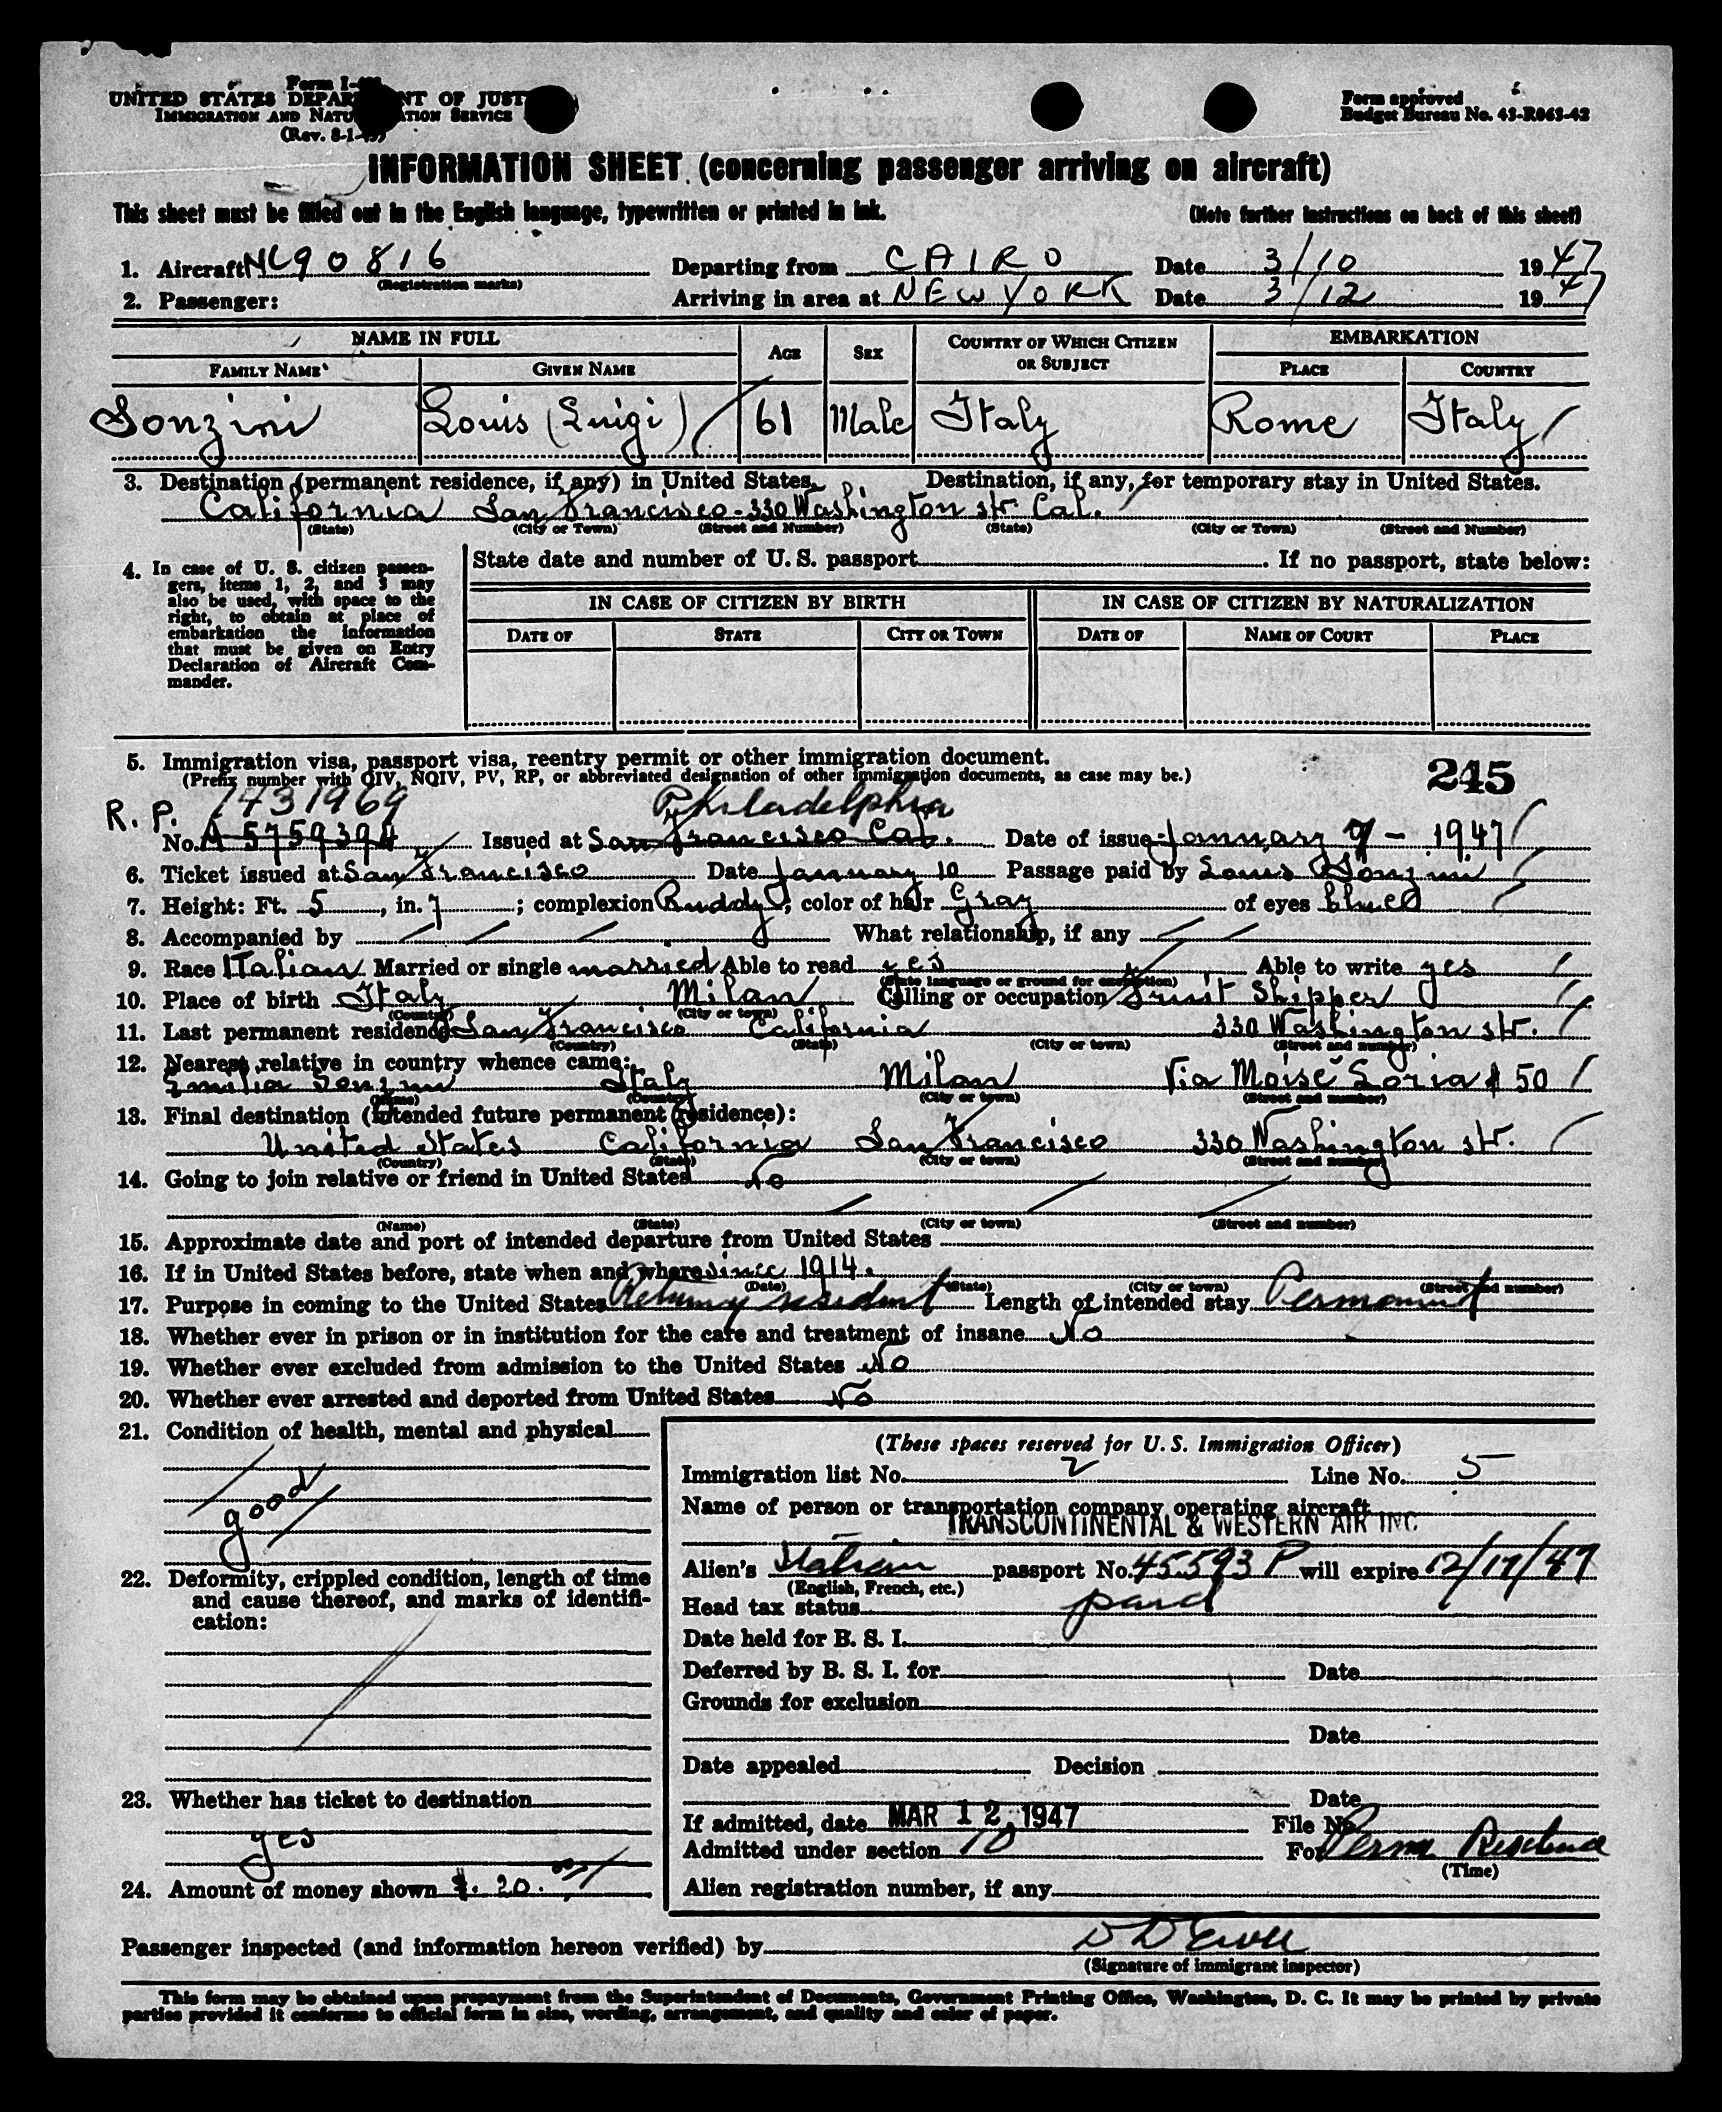 Form I-
UNITED STATES DEPAR NT OF JUST
IMMIGRATION AND NATU ATION SERVICE
(Rev. 8-1-
Form approved
Budget Bureau No. 43-R063-42
INFORMATION SHEET (concerning passenger arriving on aircraft)
This sheet must be filled out in the English language, typewritten or printed in ink. (Note further instructions on back of this sheet)
1. Aircraft NC90816 Departing from CAIRO Date 3/10 1947
(Registration marks)
2. Passenger: Arriving in area at NEW YORK Date 3/12 1947
NAME IN FULL AGE SEX COUNTRY OF WHICH CITIZEN OR SUBJECT EMBARKATION
FAMILY NAME GIVEN NAME PLACE COUNTRY
Sonzini Louis (Luigi) 61 Male Italy Rome Italy
3. Destination (permanent residence, if any) in United States. Destination, if any, for temporary stay in United States.
California San Francisco - 330 Washington str. Cal.
(State) (City or Town) (Street and Number) (State) (City or Town) (Street and Number)
4. In case of U. S. citizen passen-
gers, items 1, 2, and 3 may
also be used, with space to the
right, to obtain at place of
embarkation the information
that must be given on Entry
Declaration of Aircraft Com-
mander.
State date and number of U. S. passport. If no passport, state below:
IN CASE OF CITIZEN BY BIRTH IN CASE OF CITIZEN BY NATURALIZATION
DATE OF STATE CITY OR TOWN DATE OF NAME OF COURT PLACE
5. Immigration visa, passport visa, reentry permit or other immigration document.
(Prefix number with QIV, NQIV, PV, RP, or abbreviated designation of other immigration documents, as case may be.)
245
R. P. 1431969 Philadelphia
No. A 5759394 Issued at San Francisco Cal. Date of issue January 7 - 1947
6. Ticket issued at San Francisco Date January 10 Passage paid by Louis Sonzini
7. Height: Ft. 5, in. 7; complexion Ruddy, color of hair Gray of eyes blue
8. Accompanied by What relationship, if any
9. Race Italian Married or single married Able to read yes Able to write yes
(State language or ground for exemption)
10. Place of birth Italy Milan Calling or occupation Fruit Shipper
(Country) (City or town)
11. Last permanent residence San Francisco California 330 Washington str.
(Country) (State) (City or town) (Street and number)
12. Nearest relative in country whence came:
Emilia Sonzini Italy Milan Via Moise Loria # 50
(Name) (Country) (City or town) (Street and number)
13. Final destination (intended future permanent residence):
United States California San Francisco 330 Washington str.
(Country) (State) (City or town) (Street and number)
14. Going to join relative or friend in United States No
(Name) (State) (City or town) (Street and number)
15. Approximate date and port of intended departure from United States
16. If in United States before, state when and where since 1914.
(Date) (State) (City or town) (Street and number)
17. Purpose in coming to the United States Returning resident Length of intended stay Permanent
18. Whether ever in prison or in institution for the care and treatment of insane No
19. Whether ever excluded from admission to the United States No
20. Whether ever arrested and deported from United States No
21. Condition of health, mental and physical
good
22. Deformity, crippled condition, length of time
and cause thereof, and marks of identifi-
cation:
23. Whether has ticket to destination
yes
24. Amount of money shown $. 20.00
(These spaces reserved for U. S. Immigration Officer)
Immigration list No. 2 Line No. 5
Name of person or transportation company operating aircraft
TRANSCONTINENTAL & WESTERN AIR INC
Alien's Italian passport No. 45593 P will expire 12/17/47
(English, French, etc.)
Head tax status paid
Date held for B. S. I.
Deferred by B. S. I. for Date
Grounds for exclusion
Date
Date appealed Decision
Date
If admitted, date MAR 12 1947 File No.
Admitted under section 10 For Perm Residence
(Time)
Alien registration number, if any
Passenger inspected (and information hereon verified) by
(Signature of immigrant inspector)
This form may be obtained upon prepayment from the Superintendent of Documents, Government Printing Office, Washington, D. C. It may be printed by private
parties provided it conforms to official form in size, wording, arrangement, and quality and color of paper.